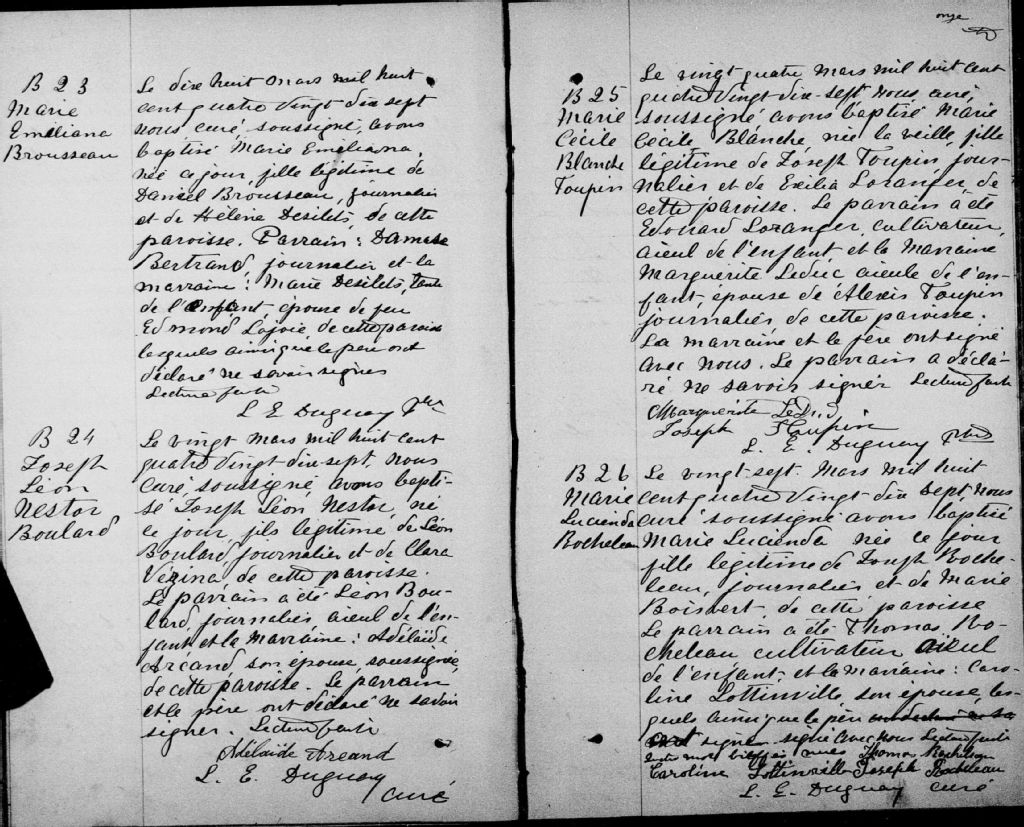 B 23
Marie
Emeliana
Brousseau
Le dix huit Mars mil huit
cent quatre vingt dix sept
nous curé, soussigné, avons
baptisé Marie Emeliana,
née ce jour, fille légitime de
Daniel Brousseau, journalier
et de Hélène Desilets, de cette
paroisse. Parrain : Damase
Bertrand, journalier et la
marraine : Marie Desilets, tante
de l'enfant, épouse de feu
Edmond Lajoie de cette paroisse
lesquels ainsi que le père ont
déclaré ne savoir signer
Lecture faite
L E Duguay Ptre
B 24
Joseph
Léon
Nestor
Boulard
Le vingt Mars mil huit cent
quatre vingt dix sept, nous
curé soussigné avons bapti-
sé Joseph Léon Nestor, né
ce jour, fils légitime de Léon
Boulard, journalier et de Clara
Vézina, de cette paroisse.
Le parrain a été Léon Bou-
lard, journalier, aïeul de l'en-
fant et la Marraine : Adélaïde
Arcand son épouse, soussignée,
de cette paroisse. Le parrain
et le père ont déclaré ne savoir
signer. Lecture faite
Adélaïde Arcand
L. E. Duguay
curé
onze
B 25
Marie
Cécile
Blanche
Toupin
Le vingt quatre Mars mil huit cent
quatre vingt dix-sept nous, curé,
soussigné avons baptisé Marie
Cécile Blanche, née la veille, fille
légitime de Joseph Toupin, jour-
nalier et de Exilia Loranger, de
cette paroisse. Le parrain a été
Edouard Loranger, cultivateur,
aieul de l'enfant, et la Marraine
Marguerite Leduc aieule de l'en-
fant, épouse de Alexis Toupin
journalier de cette paroisse.
La marraine et le père ont signé
avec nous. Le parrain a décla-
ré ne savoir signer Lecture faite
Marguerite LeDuc
Joseph Toupin
L. E. Duguay Ptre
B 26
Marie
Lucienda
Rocheleau
Le vingt-sept Mars mil huit
cent quatre vingt dix sept, nous
curé soussigné avons baptisé
Marie Lucienda née ce jour
fille légitime de Joseph Roche-
leau, journalier et de Marie
Boisvert de cette paroisse
Le parrain a été Thomas Ro-
cheleau cultivateur aieul
de l'enfant et la marraine : Caro-
line Lottinville son épouse, les-
quels ainsi que le père
signer signé avec nous Lecture faite
mots biffés nuls Thomas Rocheleau
Caroline Lottinville Joseph Rocheleau
L. E. Duguay curé